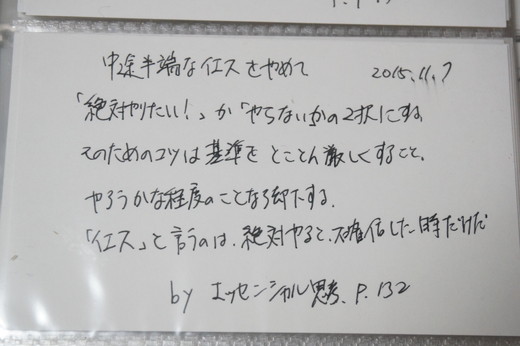 中途半端なイエスをやめて 2015.11.7
「絶対やりたい！」か「やらない」かの2択にする。
そのためのコツは基準をとことん厳しくすること。
やろうかな程度のことなら却下する。
「イエス」と言うのは、絶対やると、確信した時だけだ
by エッセンシャル思考、P.132